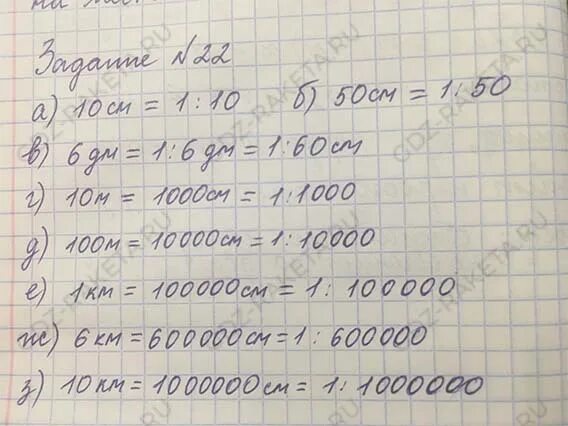 Задание №22
а) 10см = 1:10 б) 50см = 1:50
в) 6дм = 1:6дм = 1:60см
г) 10м = 1000см = 1:1000
д) 100м = 10000см = 1:10000
е) 1км = 100000см = 1:100000
ж) 6км = 600000см = 1:600000
з) 10км = 1000000см = 1:1000000
GDZ-RAKETA.RU